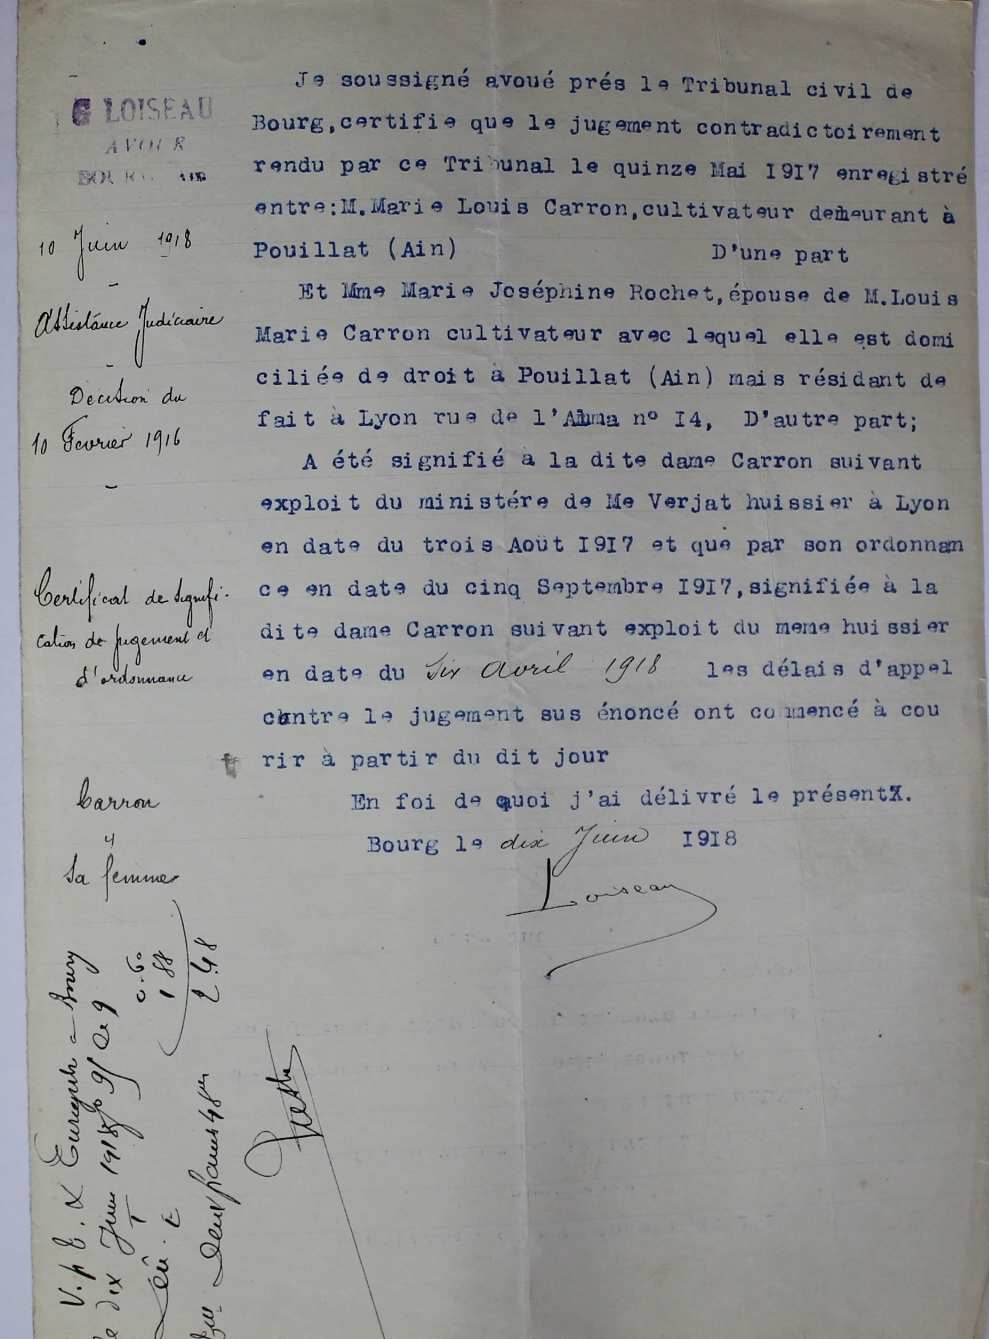 G LOISEAU
AVOUÉ
BOURG AIN
10 Juin 1918
Assistance Judiciaire
Décision du
10 Fevrier 1916
Certificat de signifi-
cation de jugement et
d'ordonnance
Carron
sa femme
Je soussigné avoué prés le Tribunal civil de
Bourg,certifie que le jugement contradictoirement
rendu par ce Tribunal le quinze Mai 1917 enregistré
entre:M.Marie Louis Carron,cultivateur demeurant à
Pouillat (Ain) D'une part
Et Mme Marie Joséphine Rochet,épouse de M.Louis
Marie Carron cultivateur avec lequel elle est domi
ciliée de droit à Pouillat (Ain) mais résidant de
fait à Lyon rue de l'Alma n° 14, D'autre part;
A été signifié à la dite dame Carron suivant
exploit du ministére de Me Verjat huissier à Lyon
en date du trois Août 1917 et que par son ordonnan
ce en date du cinq Septembre 1917,signifiée à la
dite dame Carron suivant exploit du meme huissier
en date du six avril 1918 les délais d'appel
contre le jugement sus énoncé ont commencé à cou
rir à partir du dit jour
En foi de quoi j'ai délivré le présentX.
Bourg le dix Juin 1918
Loiseau
V. p. T. & Enregistré à Bourg
le dix Juin 1918
0.60
1 88
2.48
deux francs 48